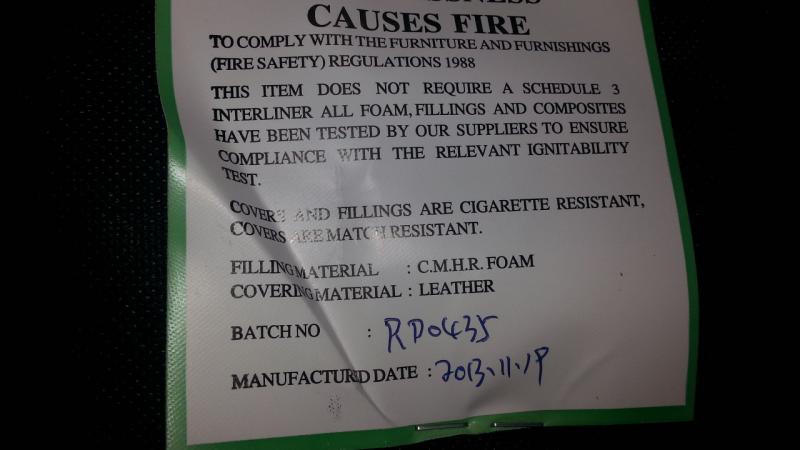 CAUSES FIRE
TO COMPLY WITH THE FURNITURE AND FURNISHINGS
(FIRE SAFETY) REGULATIONS 1988
THIS ITEM DOES NOT REQUIRE A SCHEDULE 3
INTERLINER ALL FOAM, FILLINGS AND COMPOSITES
HAVE BEEN TESTED BY OUR SUPPLIERS TO ENSURE
COMPLIANCE WITH THE RELEVANT IGNITABILITY
TEST.
COVERS AND FILLINGS ARE CIGARETTE RESISTANT,
COVERS ARE MATCH RESISTANT.
FILLING MATERIAL : C.M.H.R. FOAM
COVERING MATERIAL : LEATHER
BATCH NO : RD0435
MANUFACTURD DATE : 2013.11.19